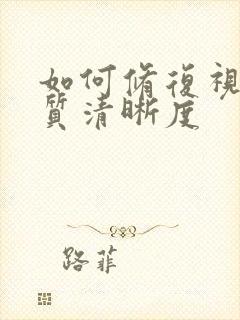 如何脩復視
質清晰度
路菲